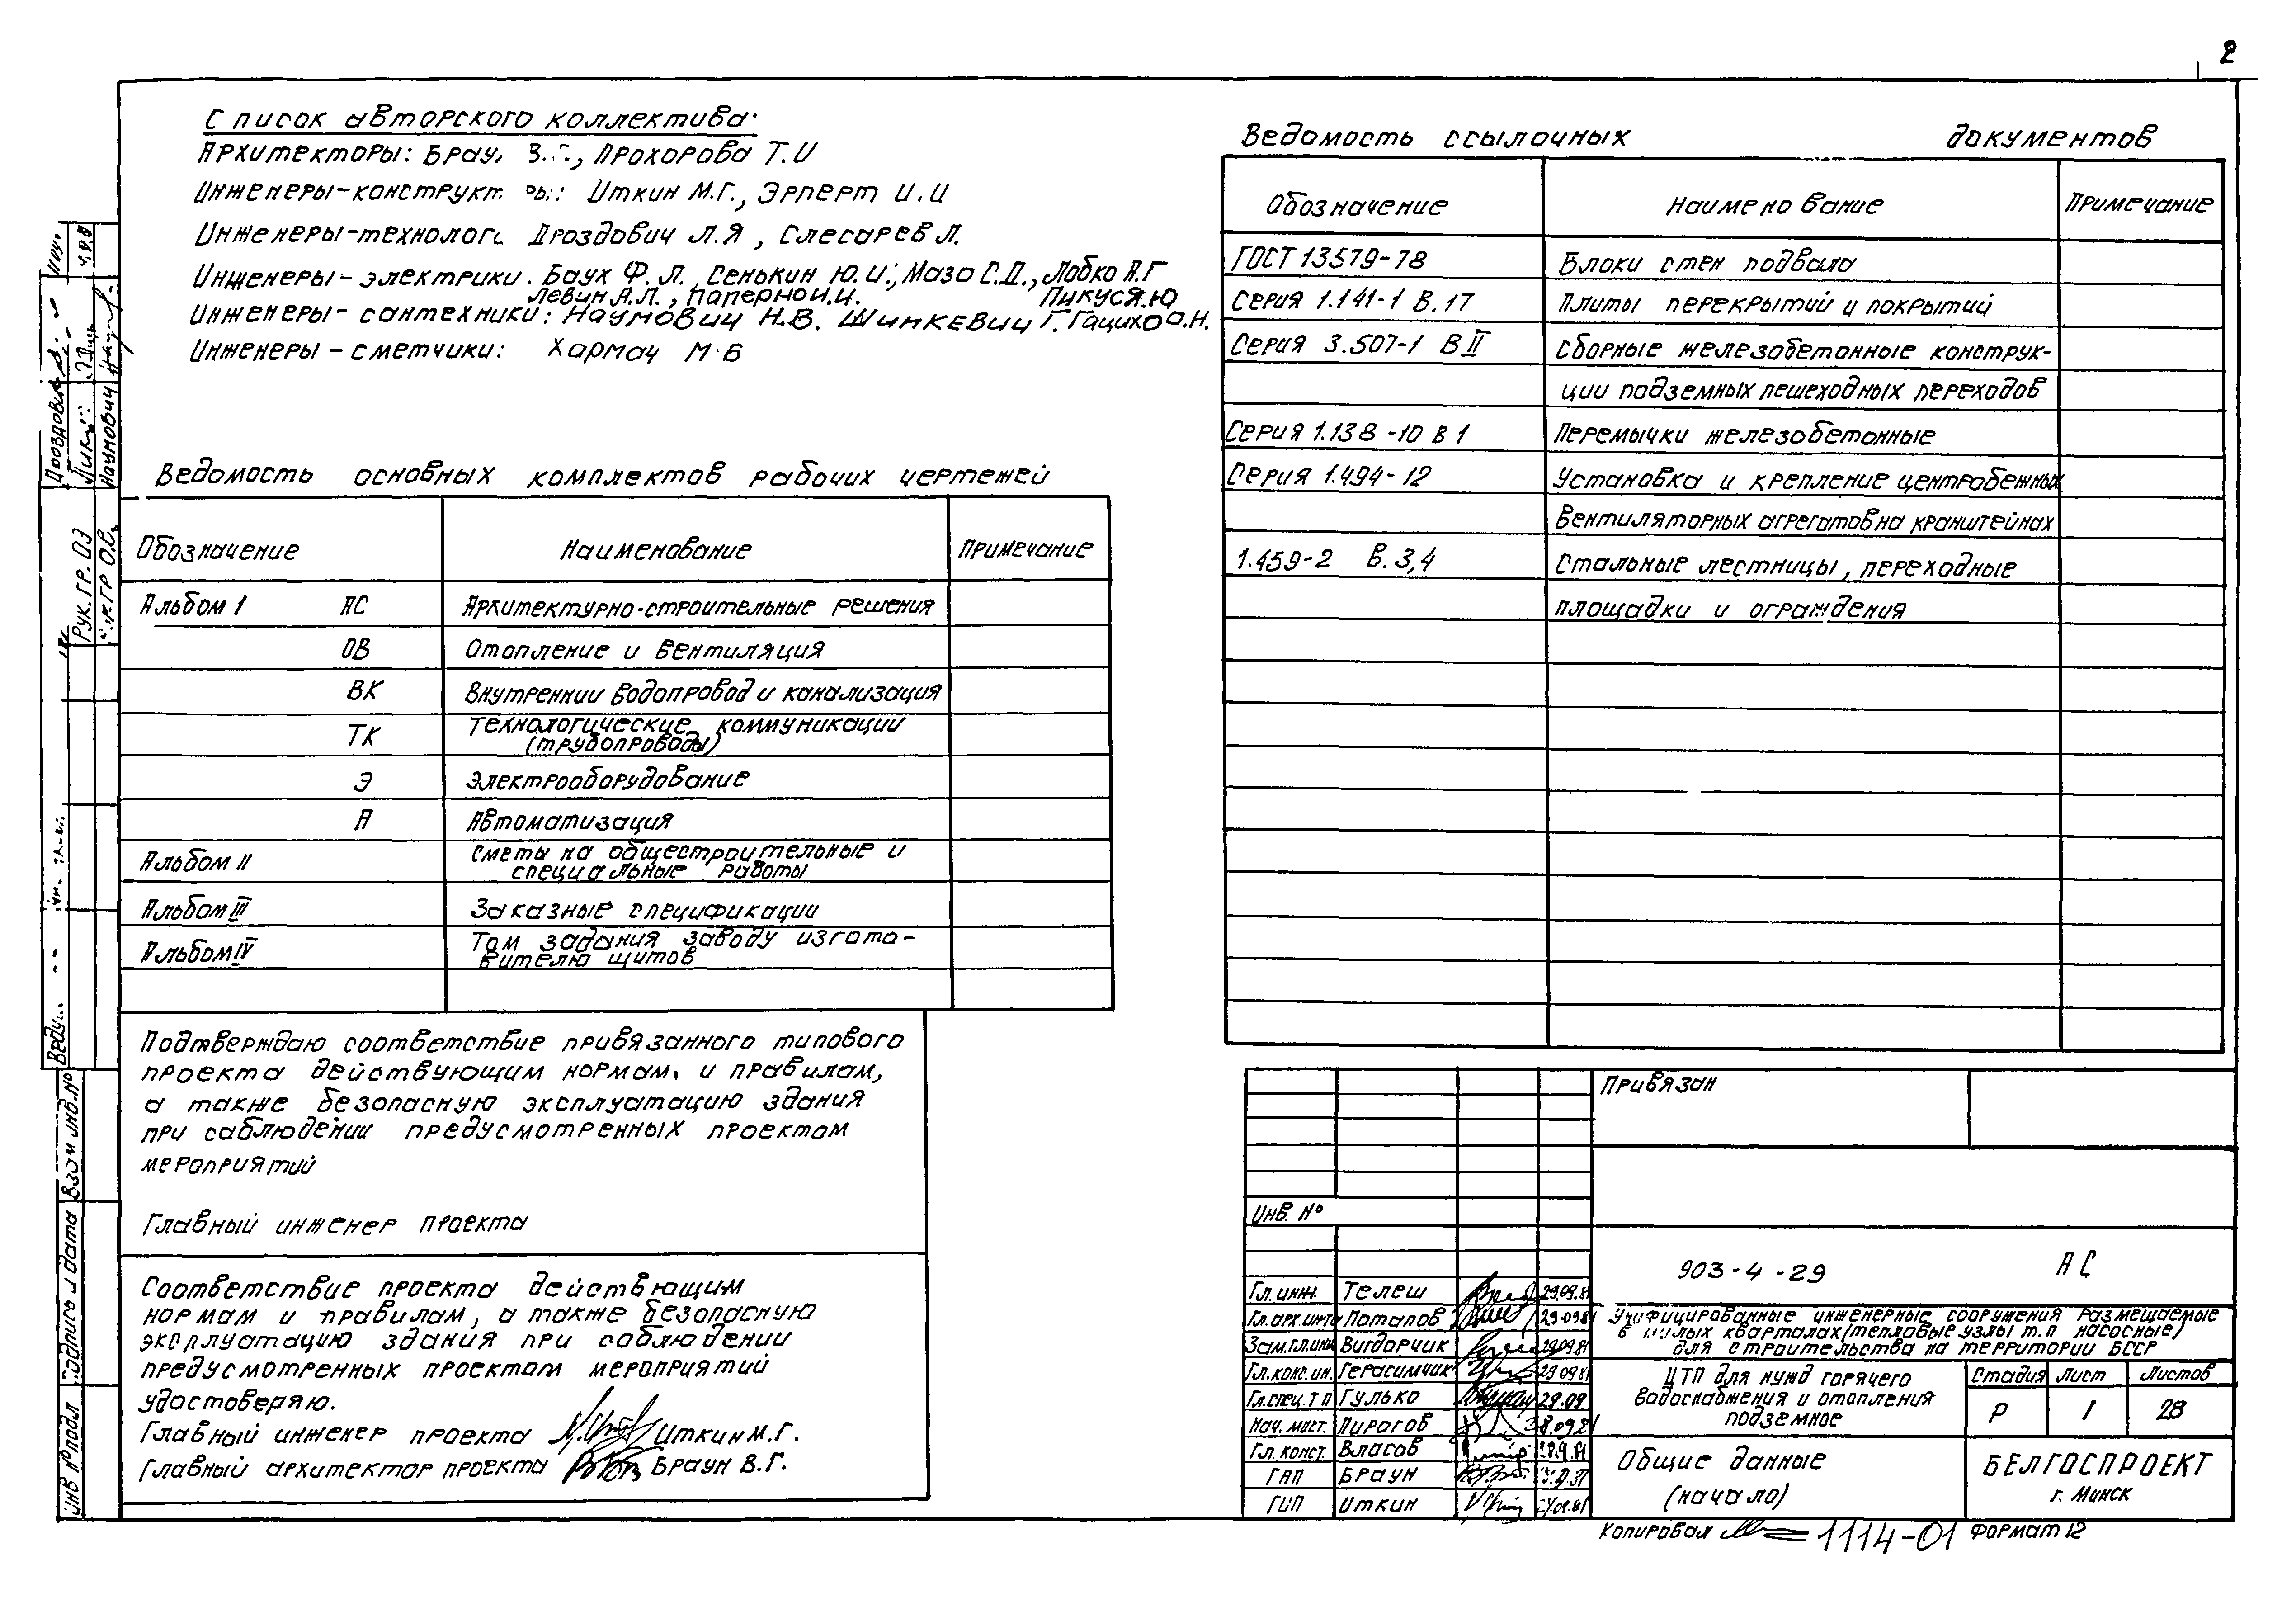 2
Список авторского коллектива:
Архитекторы: Браун В.Г., Прохорова Т.И
Инженеры-конструкторы: Иткин М.Г., Эрперт И.И
Инженеры-технологи Дроздович Л.Я, Слесарев Л.
Инженеры-электрики. Баух Ф.Л., Сенькин Ю.И., Мазо С.Д., Лобко А.Г
Левин А.Л., Паперно И.И. Пикус Я.Ю
Инженеры-сантехники: Наумович Н.В. Шинкевич Г. Гацихо О.Н.
Инженеры-сметчики: Хармач М.Б
Ведомость основных комплектов рабочих чертежей
Обозначение Наименование Примечание
Альбом I АС Архитектурно-строительные решения
ОВ Отопление и вентиляция
ВК Внутреннии водопровод и канализация
ТК Технологические коммуникации
(трубопроводы)
Э Электрооборудование
А Автоматизация
Альбом II Сметы на общестроительные и
специальные работы
Альбом III Заказные спецификации
Альбом IV Том задания заводу изгото-
вителю щитов
Подтверждаю соответствие привязанного типового
проекта действующим нормам и правилам,
а также безопасную эксплуатацию здания
при соблюдении предусмотренных проектом
мероприятий
Главный инженер проекта
Соответствие проекта действующим
нормам и правилам, а также безопасную
эксплуатацию здания при соблюдении
предусмотренных проектом мероприятий
удостоверяю.
Главный инженер проекта Иткин М.Г.
Главный архитектор проекта Браун В.Г.
Ведомость ссылочных документов
Обозначение Наименование Примечание
ГОСТ 13579-78 Блоки стен подвала
Серия 1.141-1 В.17 Плиты перекрытий и покрытий
Серия 3.507-1 В II Сборные железобетонные конструк-
ции подземных пешеходных переходов
Серия 1.138-10 В 1 Перемычки железобетонные
Серия 1.494-12 Установка и крепление центробежных
вентиляторных агрегатов на кранштейнах
1.459-2 В.3,4 Стальные лестницы, переходные
площадки и ограждения
Привязан
Инв. №
903-4-29 АС
Гл.инж. Телеш 29.09.81
Гл.арх.инта Потапов 29.09.81
Зам.гл.инж Вигдорчик 29.09.81
Гл.конс.ин. Герасимчик 29.09.81
Гл.спец.ТП Гулько 29.09
Нач. маст. Пирогов
Гл. конст. Власов 28.9.81
ГАП Браун
ГИП Иткин
Унифицированные инженерные сооружения размещаемые
в жилых кварталах (тепловые узлы т.п насосные)
для строительства на территории БССР
ЦТП для нужд горячего
водоснабжения и отопления
подземное
Стадия Лист Листов
Р 1 28
Общие данные
(начало)
БЕЛГОСПРОЕКТ
г. Минск
Копировал 1114-01 Формат 12
Дроздович
Наумович
Рук. гр. ОЭ
Взам инв.№
Подпись и дата
Инв № подл